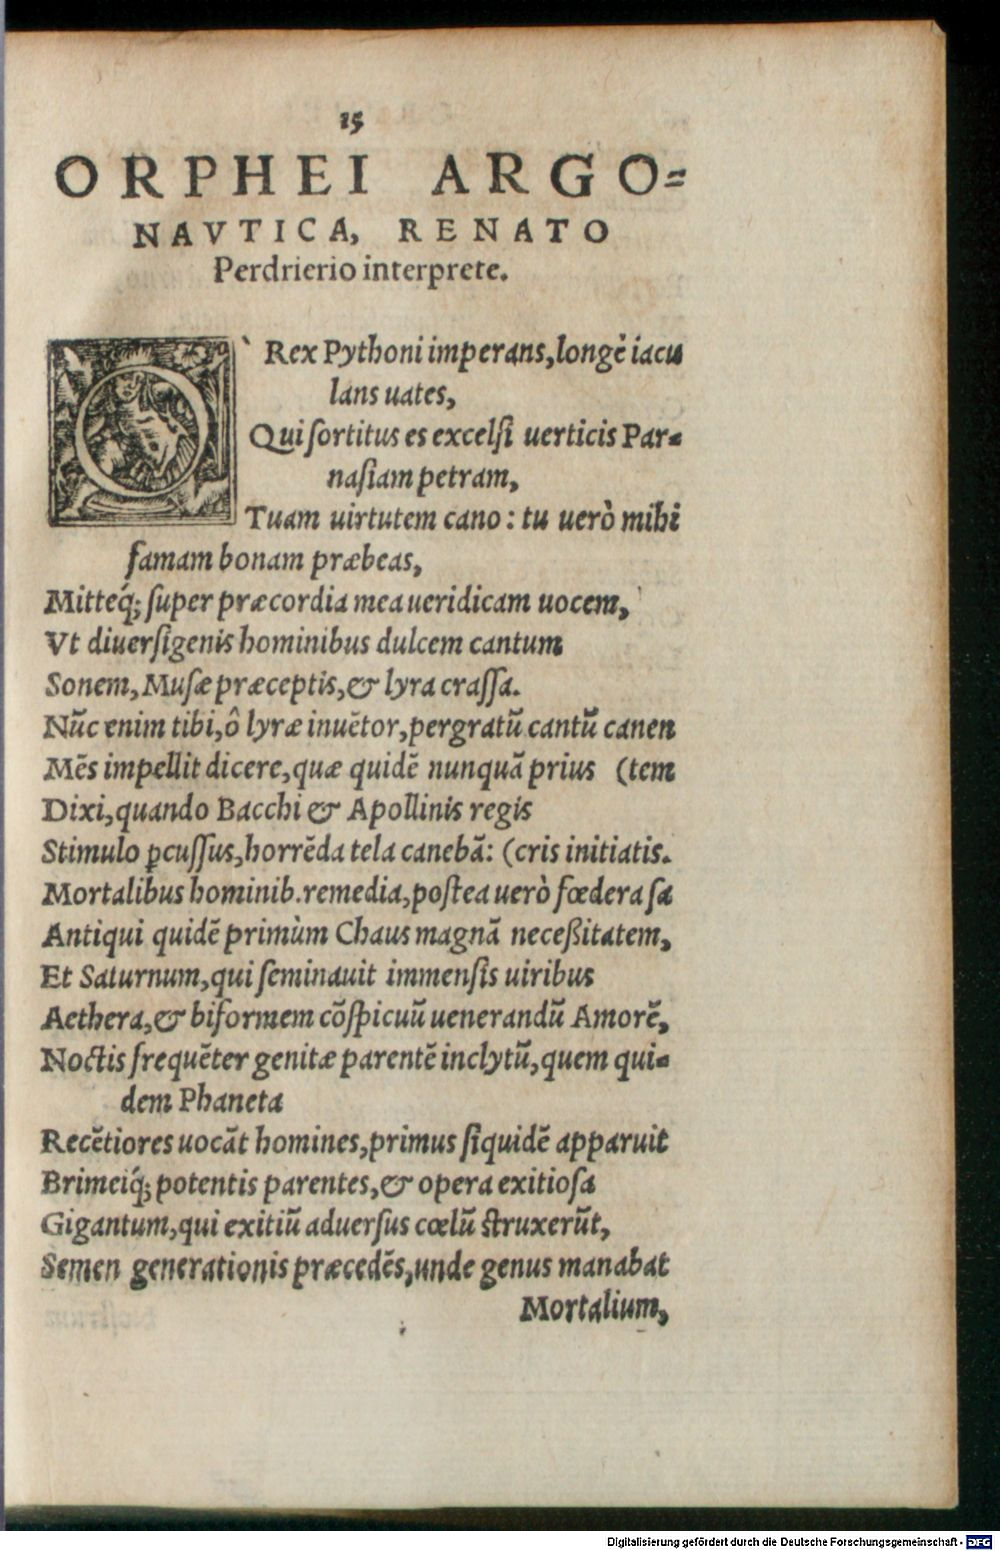 15
ORPHEI ARGO=
NAVTICA, RENATO
Perdrierio interprete.
O` Rex Pythoni imperans, longè iacu
lans uates,
Qui ſortitus es excelſi uerticis Par-
naſiam petram,
Tuam uirtutem cano: tu uerò mihi
famam bonam præbeas,
Mitteq́; ſuper præcordia mea ueridicam uocem,
Vt diuerſigenis hominibus dulcem cantum
Sonem, Muſæ præceptis, & lyra craſſa.
Nūc enim tibi, ô lyræ inuētor, pergratū cantū canen
Mēs impellit dicere, quæ quidē nunquā prius (tem
Dixi, quando Bacchi & Apollinis regis
Stimulo ꝑcuſſus, horrēda tela canebā: (cris initiatis.
Mortalibus hominib. remedia, poſtea uerò fœdera ſa
Antiqui quidē primùm Chaus magnā neceßitatem,
Et Saturnum, qui ſeminauit immenſis uiribus
Aethera, & biformem cōſpicuū uenerandū Amorē,
Noctis frequēter genitæ parentē inclytū, quem qui-
dem Phaneta
Recētiores uocāt homines, primus ſiquidē apparuit
Brimeiq́; potentis parentes, & opera exitioſa
Gigantum, qui exitiū aduerſus cœlū ſtruxerūt,
Semen generationis præcedēs, unde genus manabat
Mortalium,
Digitalisierung gefördert durch die Deutsche Forschungsgemeinschaft - DFG